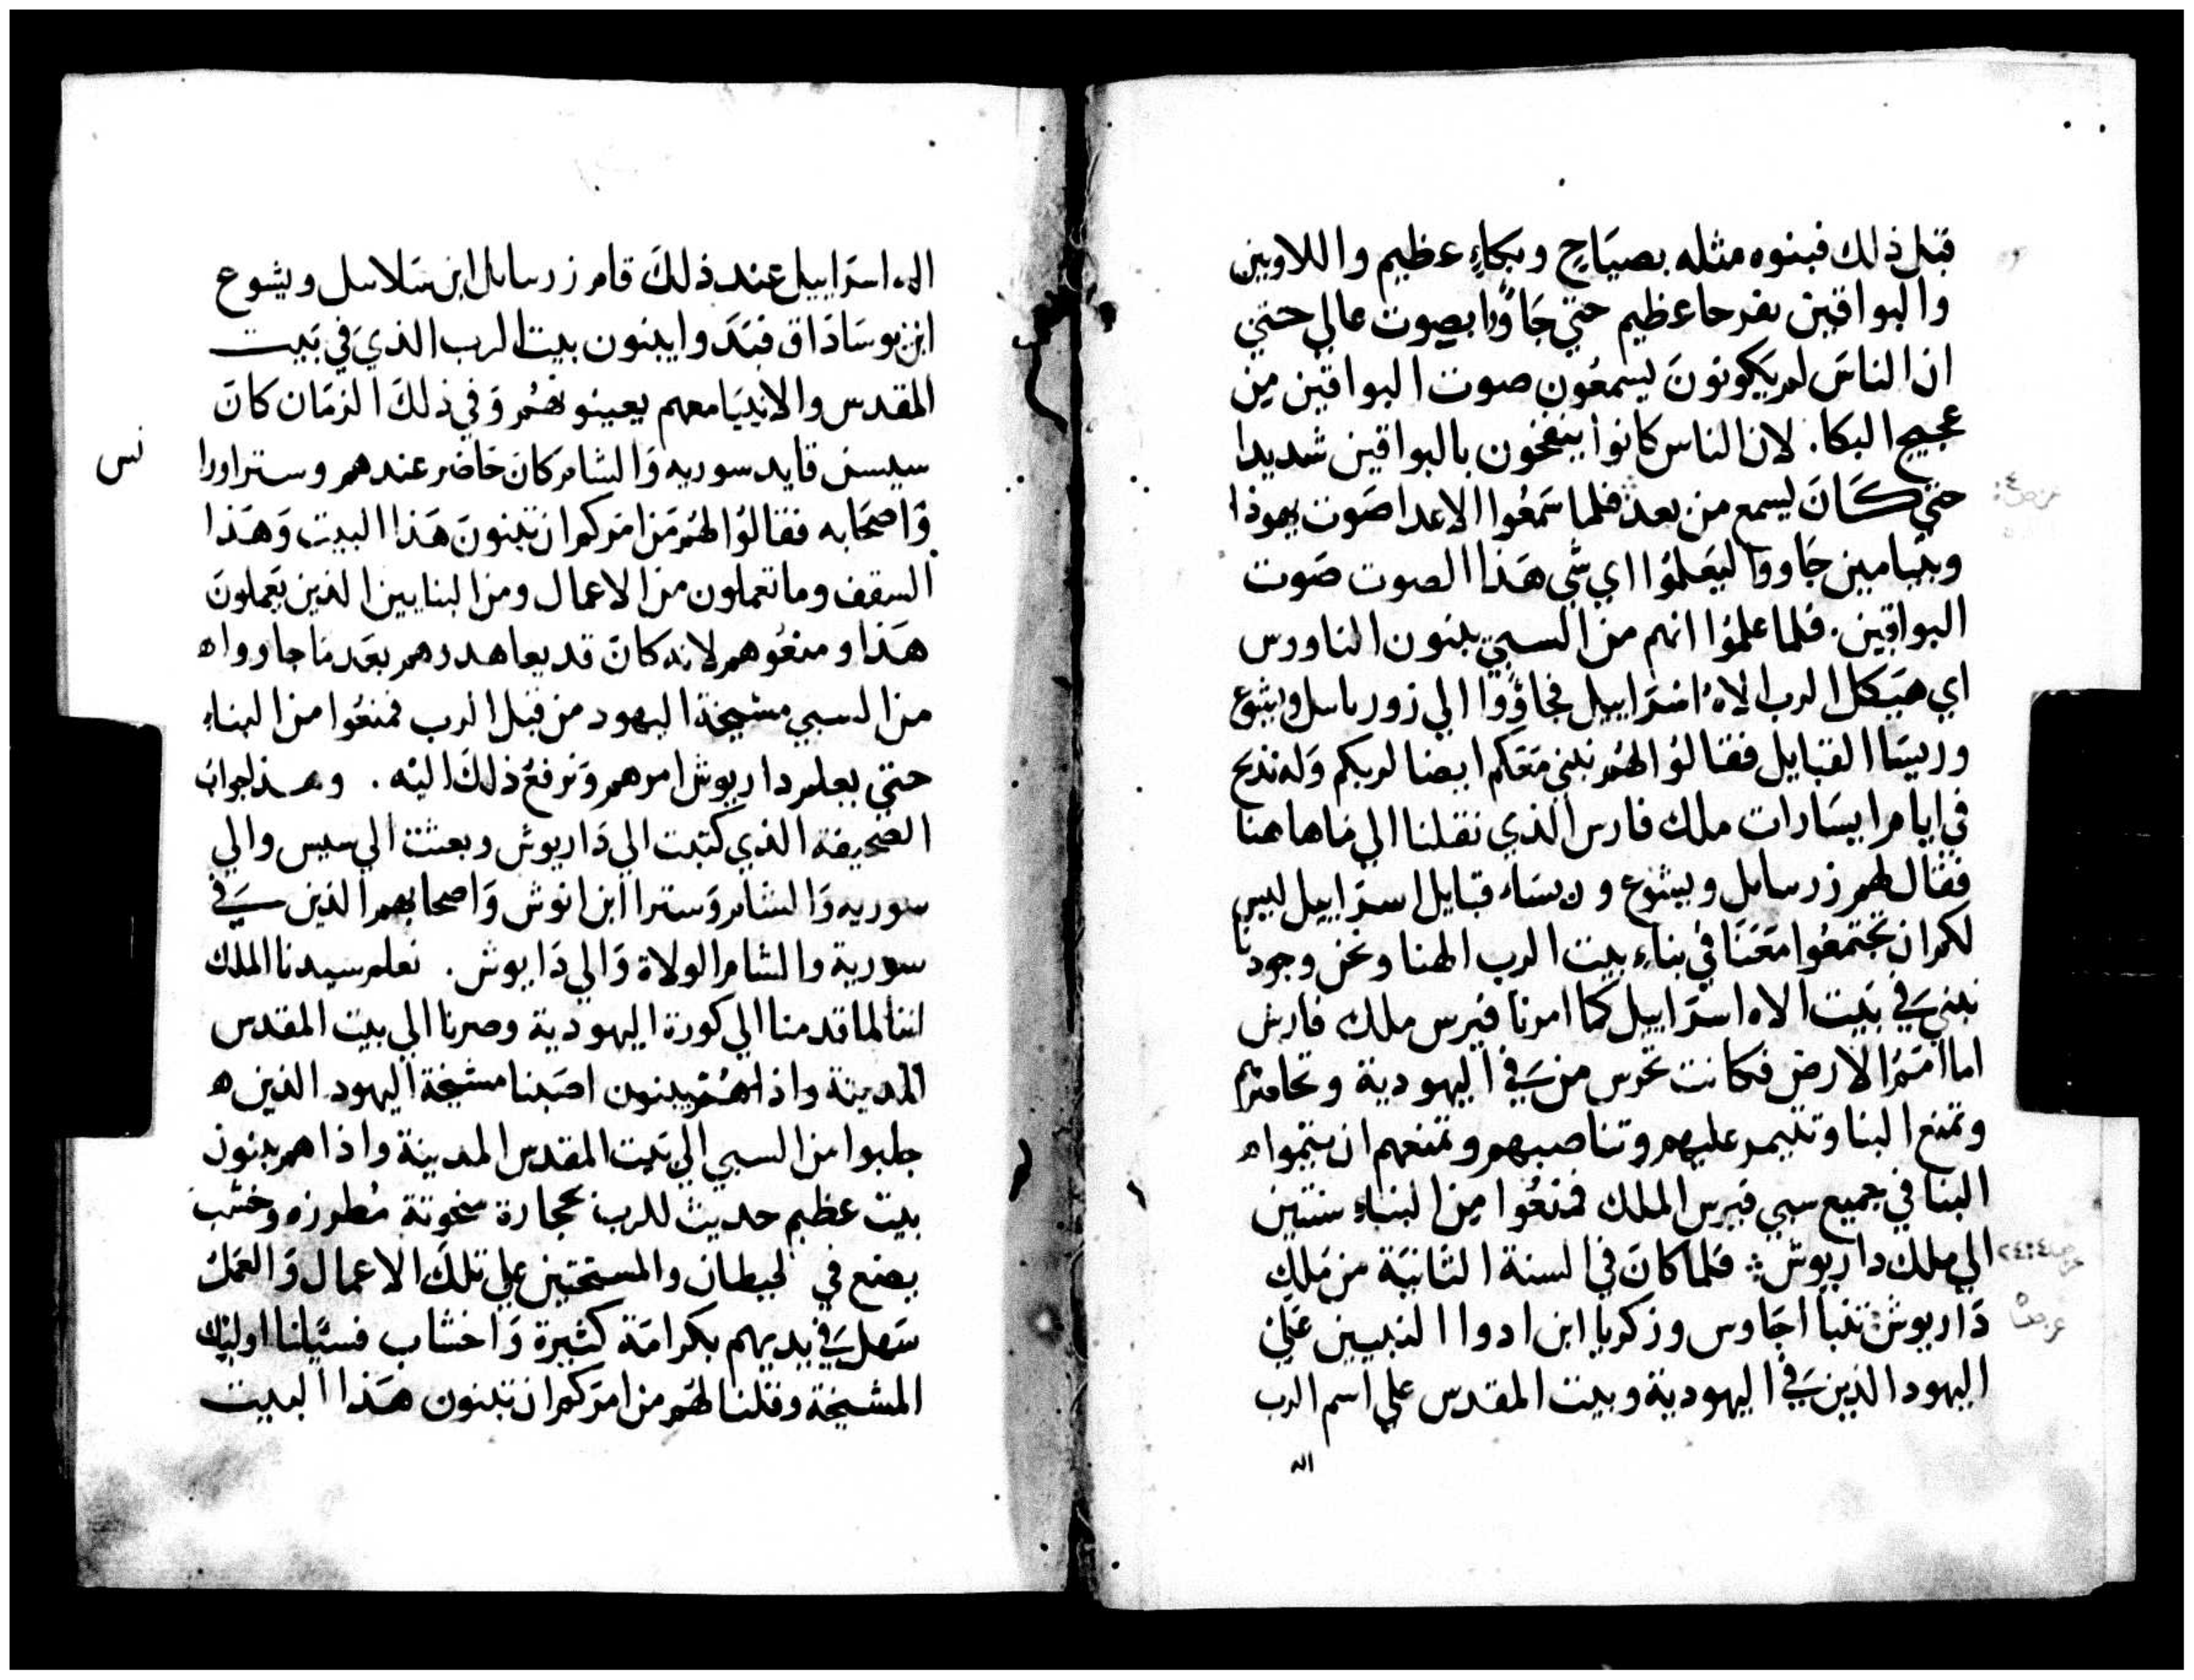 قبل ذلك فبنوه مثله بصيَاحٍ وبكاءٍ عظيم واللاويين
والبواقين بفرحا عظيم حتي جَاؤا بصوت عالي حتي
ان الناسَ لم يَكونونَ يسمعُون صوت البواقين مِن
عجيج البكا. لان الناس كانوا ينفخون بالبواقين شديدا
حتي كَانَ ليسمع من بعد فلما سَمعُوا الاعدا صَوت يهوذا
وبنيامين جَاووا ليَعلمُوا اي شي هَذا الصوت صَوت
البواقين. فلما علمُوا انهم من السبي يبنون الناووس
اي هَيكل الرب الاهُ اسرَاييل فجاؤوا الي زورباسل ويشوع
وريسَا القبايل فقالوُا لهُم نبني مَعَكم ايضا لربكم وَله نذبح
في ايام ايسَارات ملك فارس الذي نقلنا الي مَاهاهنا
فقال لهم زرسابل ويشوع ورسَاء قبايل اسرَاييل ليس
لكم ان تجتمعُوا مَعَنا في بناءِ بيت الرب الهنا ونحن وجودنا
نبني في بَيت الاه اسرَاييل كما امرنا قيرس ملك فارس
اما امَمُ الارض فكانت تحرس من في اليهودية وتحاصرهم
وتمنع البنا وتقيم عليهم وتناصبهم وتمنعهم ان يتمواه
البنا في جميع سبي قيرس الملك فمنعُوا مِن البناءِ سنتين
الي ملك داريوش فلما كانَ في السنة الثانيَة من مَلك
دَاريوش تنبا اجَاوس وزكريا ابن ادوا النبيين عَلي
اليهود الذين في اليهودية وبيت المقدس علي اسم الرب
اله
اله اسرَاييل عند ذلكَ قام زرسابل ابن سَلاسل ويشوع
ابن يوسَادَاق فبَدَوا يبنون بيت الرب الذي في بَيت
المقدس والانبيَا معهم يعينونهُم وَفي ذلكَ الزمَان كانَ
سيسن قايد سوريه وَالشام كانَ حَاضر عندهم وستراورا
وَاصحَابه فقالوُا لهُم مَن امَركم ان تبنونَ هَذا البيت وَهَذا
السقف وما تعملون من الاعمال ومن البنايين الذين يَعملونَ
هَذا ومنعُوهم لانه كانَ قد يعاهدهم بعَد مَا جاوواه
من السبي مشيخة اليهود من قبل الرب فمنعُوا من البناءِ
حتي يعلم داريوش امرهم وَنرفعُ ذلكَ اليه. وهذ جواب
الصحيفة الذي كتبت الي دَاريوش وبعثت الي سيس والي
سوريه وَالشام وَسترا ابن انوش وَاصحابهم الذين في
سورية والشام الولاة وَالي دَاريوش. نعلم سيدنا الملك
اننا لما قدمنا الي كورة اليهودية وصرنا الي بيت المقدس
المدينة واذا هُم يبنون اصَبنا مشيخة اليهود الذين ه
جلبوا من السبي الي بَيت المقدس المدينة واذا هم يبنون
بيت عظيم حديث للرب بحجارة منحوتة مُطرزه وخشب
يصنع في الحيطان والمستحتين علي تلكَ الاعمال وَالعَمل
سَهل في يديهم بكرامَة كثيرة وَاخشاب فسَيلنا اوليك
المشيخة وقلنا لهُم من امَركم ان تبنون هَذا البيت